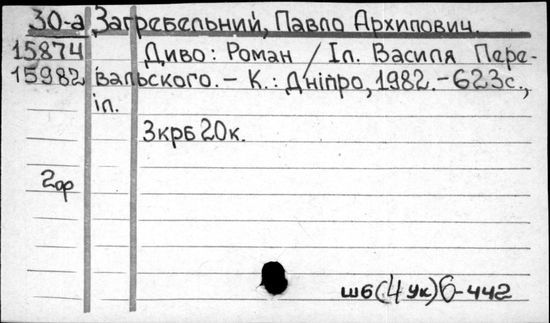 30-а Загребельний, Павло Архипович.
15874 Диво: Роман / Іл. Василя Пере-
15982 вальського. – К.: Дніпро, 1982. – 623с.,
іл.
3крб 20к.
2ор
шб(4Ук)6-442